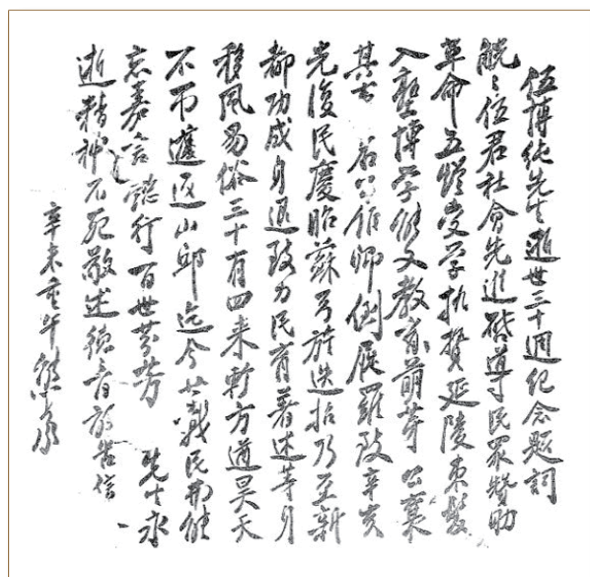 伍博純先生逝世三十週紀念題詞
觥〻伍君社會先進啓導民眾贊助
革命五燈受学執贄延陵束髮
入塾博学能文教育萌芽 公襄
其 君 作師倒屣羅致辛亥
光復民慶昭蘇弓旌迭招乃至新
都功成身退致力民育著述等身
移風易俗三十有四来軫方遒昊天
不弔遽返山邱迄今廿載民尚能
志嘉言懿行百世芬芳 先生永
逝精神不死敬述德音 告信
辛未重午